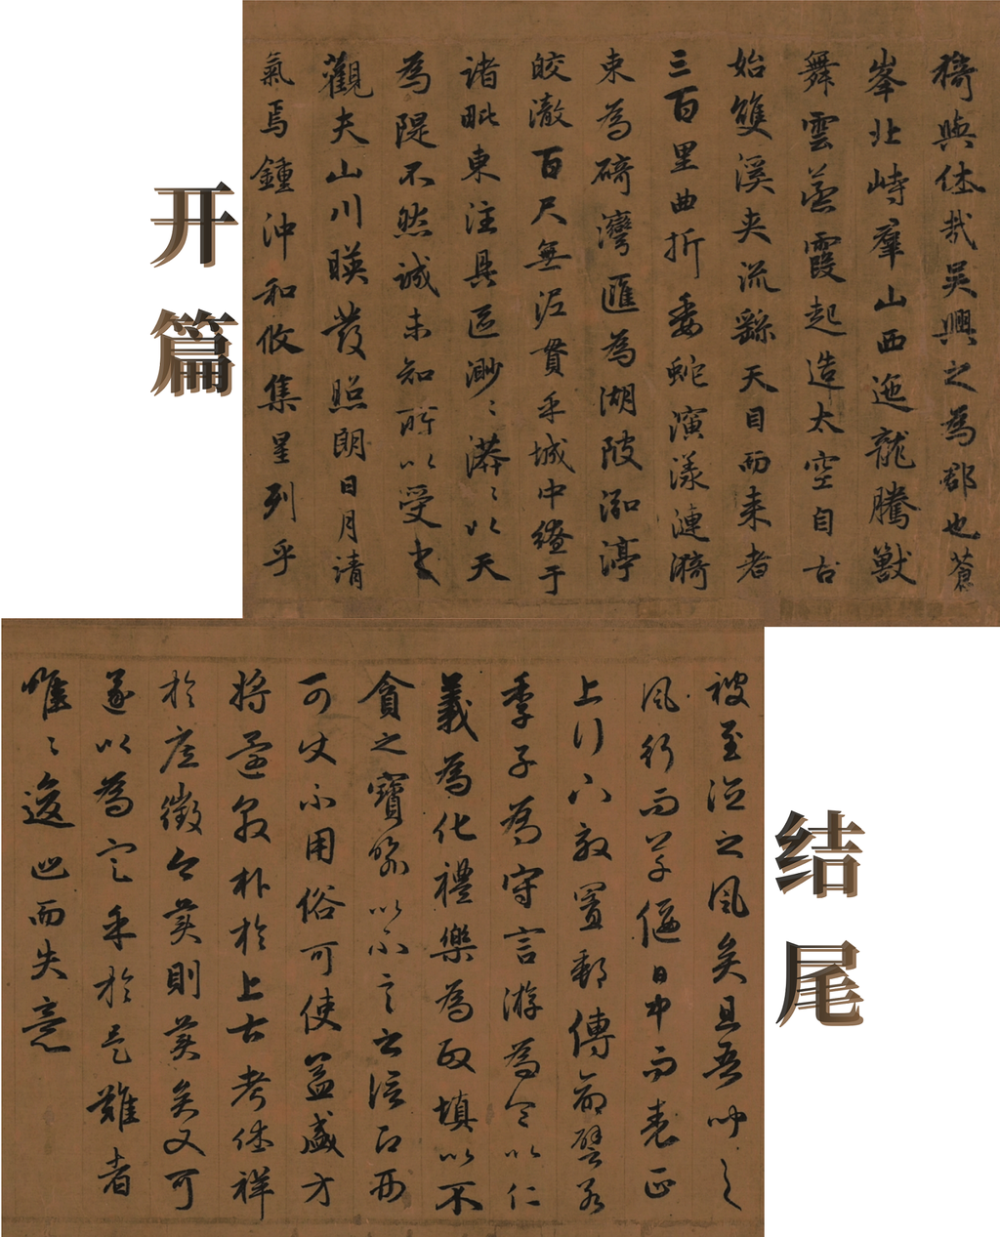 开篇
猗與休哉吴興之為郡也蒼
峯北峙羣山西迤龍騰獸
舞雲蒸霞起造太空自古
始雙溪夾流繇天目而来者
三百里曲折委蛇演漾漣漪
束為碕灣匯為湖陂泓渟
皎澈百尺無泥貫乎城中繚于
諸毗東注具區渺〻漭〻以天
為隄不然誠未知所以受之
觀夫山川暎發照朗日月清
氣焉鍾沖和攸集星列乎
结尾
被至治之風矣且吾聞之
風行而草偃日中而表正
上行下效置郵傳命譬若
季子為守言游為令以仁
義為化禮樂為政填以不
貪之寶喻以不言之信
可使不用俗可使益盛方
將還朴於上古考休祥
於庶徵今美則美矣又可
遂以為定乎於是難者
惟〻逡巡而失意